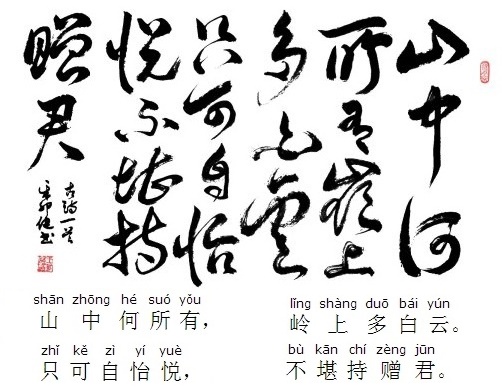 山中何
所有嶺上
多白雲
只可自怡
悦不堪持
贈君
古诗一首
shān zhōng hé suó yǒu
山中何所有，
lǐng shàng duō bái yún
岭上多白云。
zhǐ kě zì yí yuè
只可自怡悦，
bù kān chí zèng jūn
不堪持赠君。